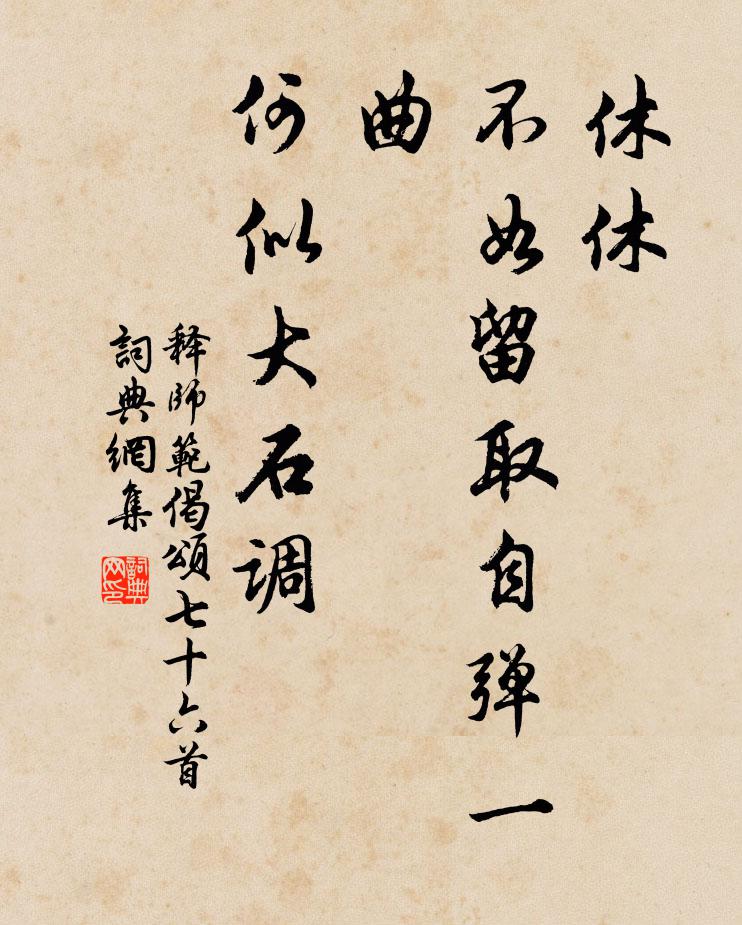 休休
不如留取自弹一
曲
何似大石调
释師範偈頌七十六首
詞典網集
詞典
网印